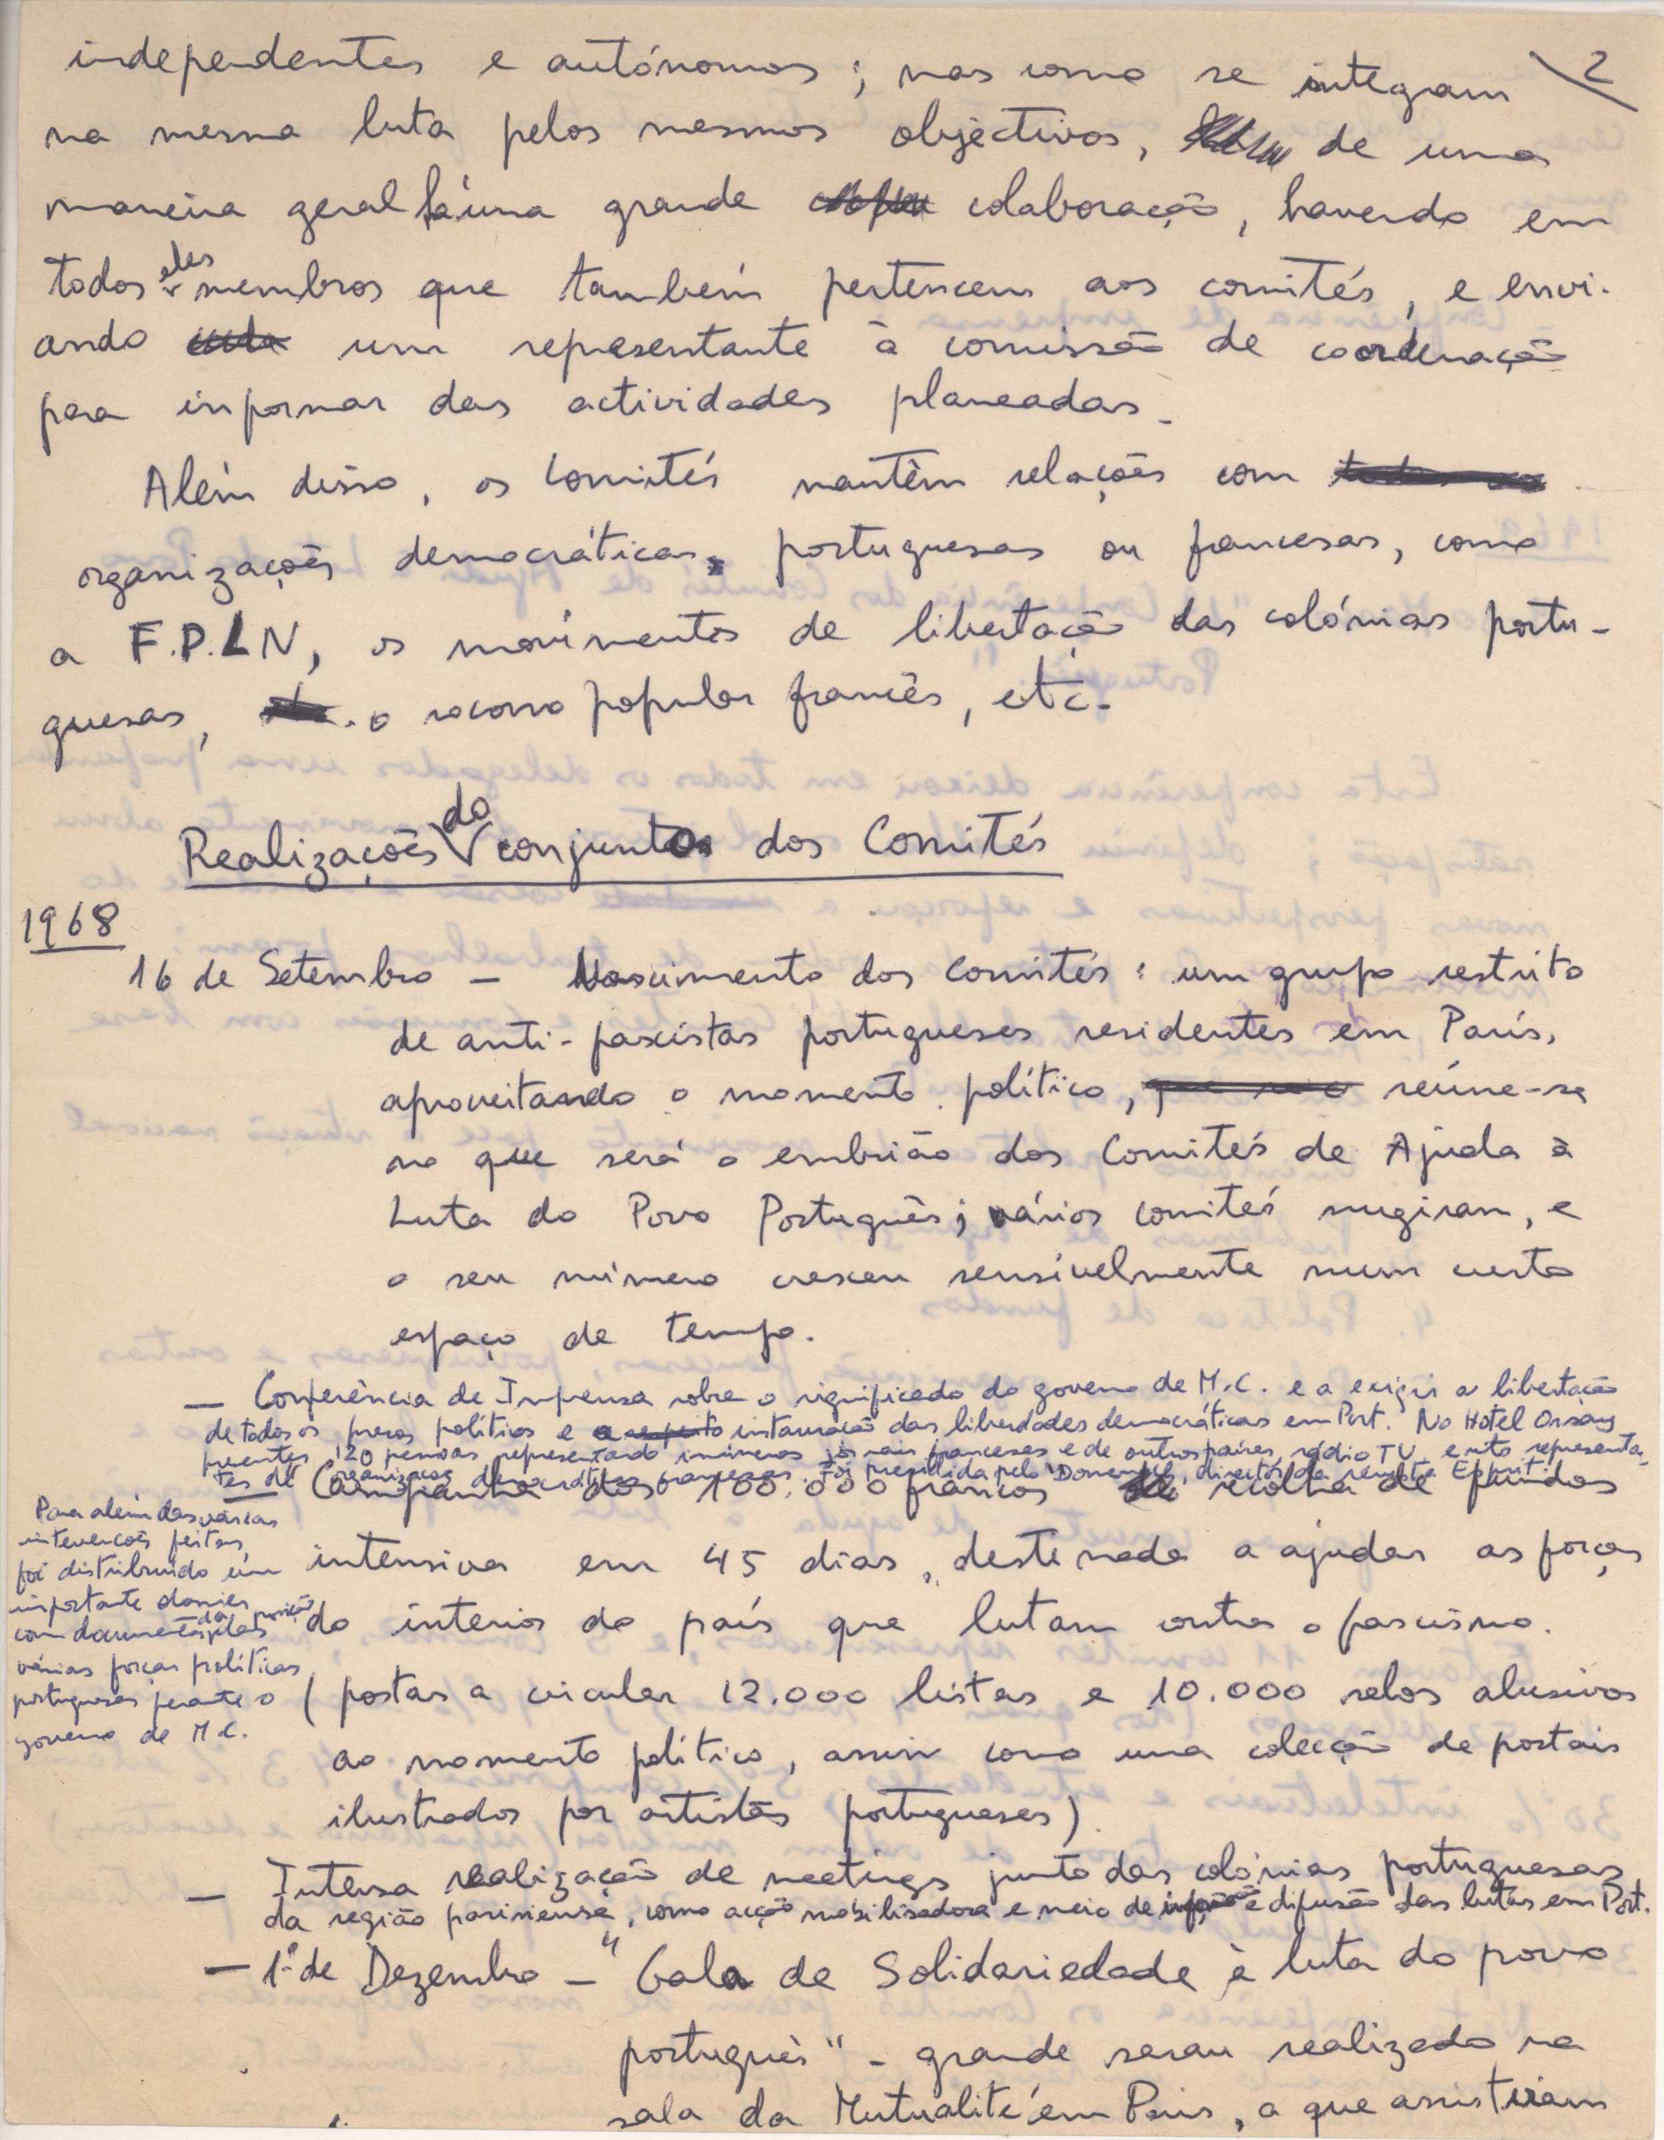 2
independentes e autónomos; mas como se integram
na mesma luta pelos mesmos objectivos, de uma
maneira geral há uma grande colaboração, havendo em
todos eles membros que também pertencem aos comités, e envi-
ando um representante à comissão de coordenação
para informar das actividades planeadas.
Além disso, os Comités mantêm relações com
organizações democráticas, portuguesas ou francesas, como
a F.P.L.N, os movimentos de libertação das colónias portu-
guesas, o socorro popular francês, etc.
Realizações do conjunto dos Comités
1968
16 de Setembro - Nascimento dos Comités: um grupo restrito
de anti-fascistas portugueses residentes em Paris,
aproveitando o momento político, reúne-se
no que será o embrião dos Comités de Ajuda à
Luta do Povo Português; vários comités surgiram, e
o seu número cresceu sensivelmente num curto
espaço de tempo.
— Conferência de Imprensa sobre o significado do governo de M.C. e a exigir a libertação
de todos os presos políticos e instauração das liberdades democráticas em Port. No Hotel Orsay
presentes 120 pessoas representando inúmeros jornais franceses e de outros países, rádio TV, e representan-
tes de organizações democráticas francesas. Foi presidida pelo Domenach, director da revista Esprit.
— Campanha dos 100.000 francos recolha de fundos
intensiva em 45 dias, destinada a ajudar as forças
do interior do país que lutam contra o fascismo.
(postas a circular 12.000 listas e 10.000 selos alusivos
ao momento político, assim como uma colecção de postais
ilustrados por artistas portugueses).
Para além das várias
intervenções feitas,
foi distribuído um
importante dossier
com documentos da posição das
várias forças políticas
portuguesas perante o
governo de M.C.
— Intensa realização de meetings junto das colónias portuguesas
da região parisiense, como acção mobilisadora e meio de difusão das lutas em Port.
— 1º de Dezembro - "Gala de Solidariedade à luta do povo
português" - grande sarau realizado na
sala da Mutualité em Paris, a que assistiram